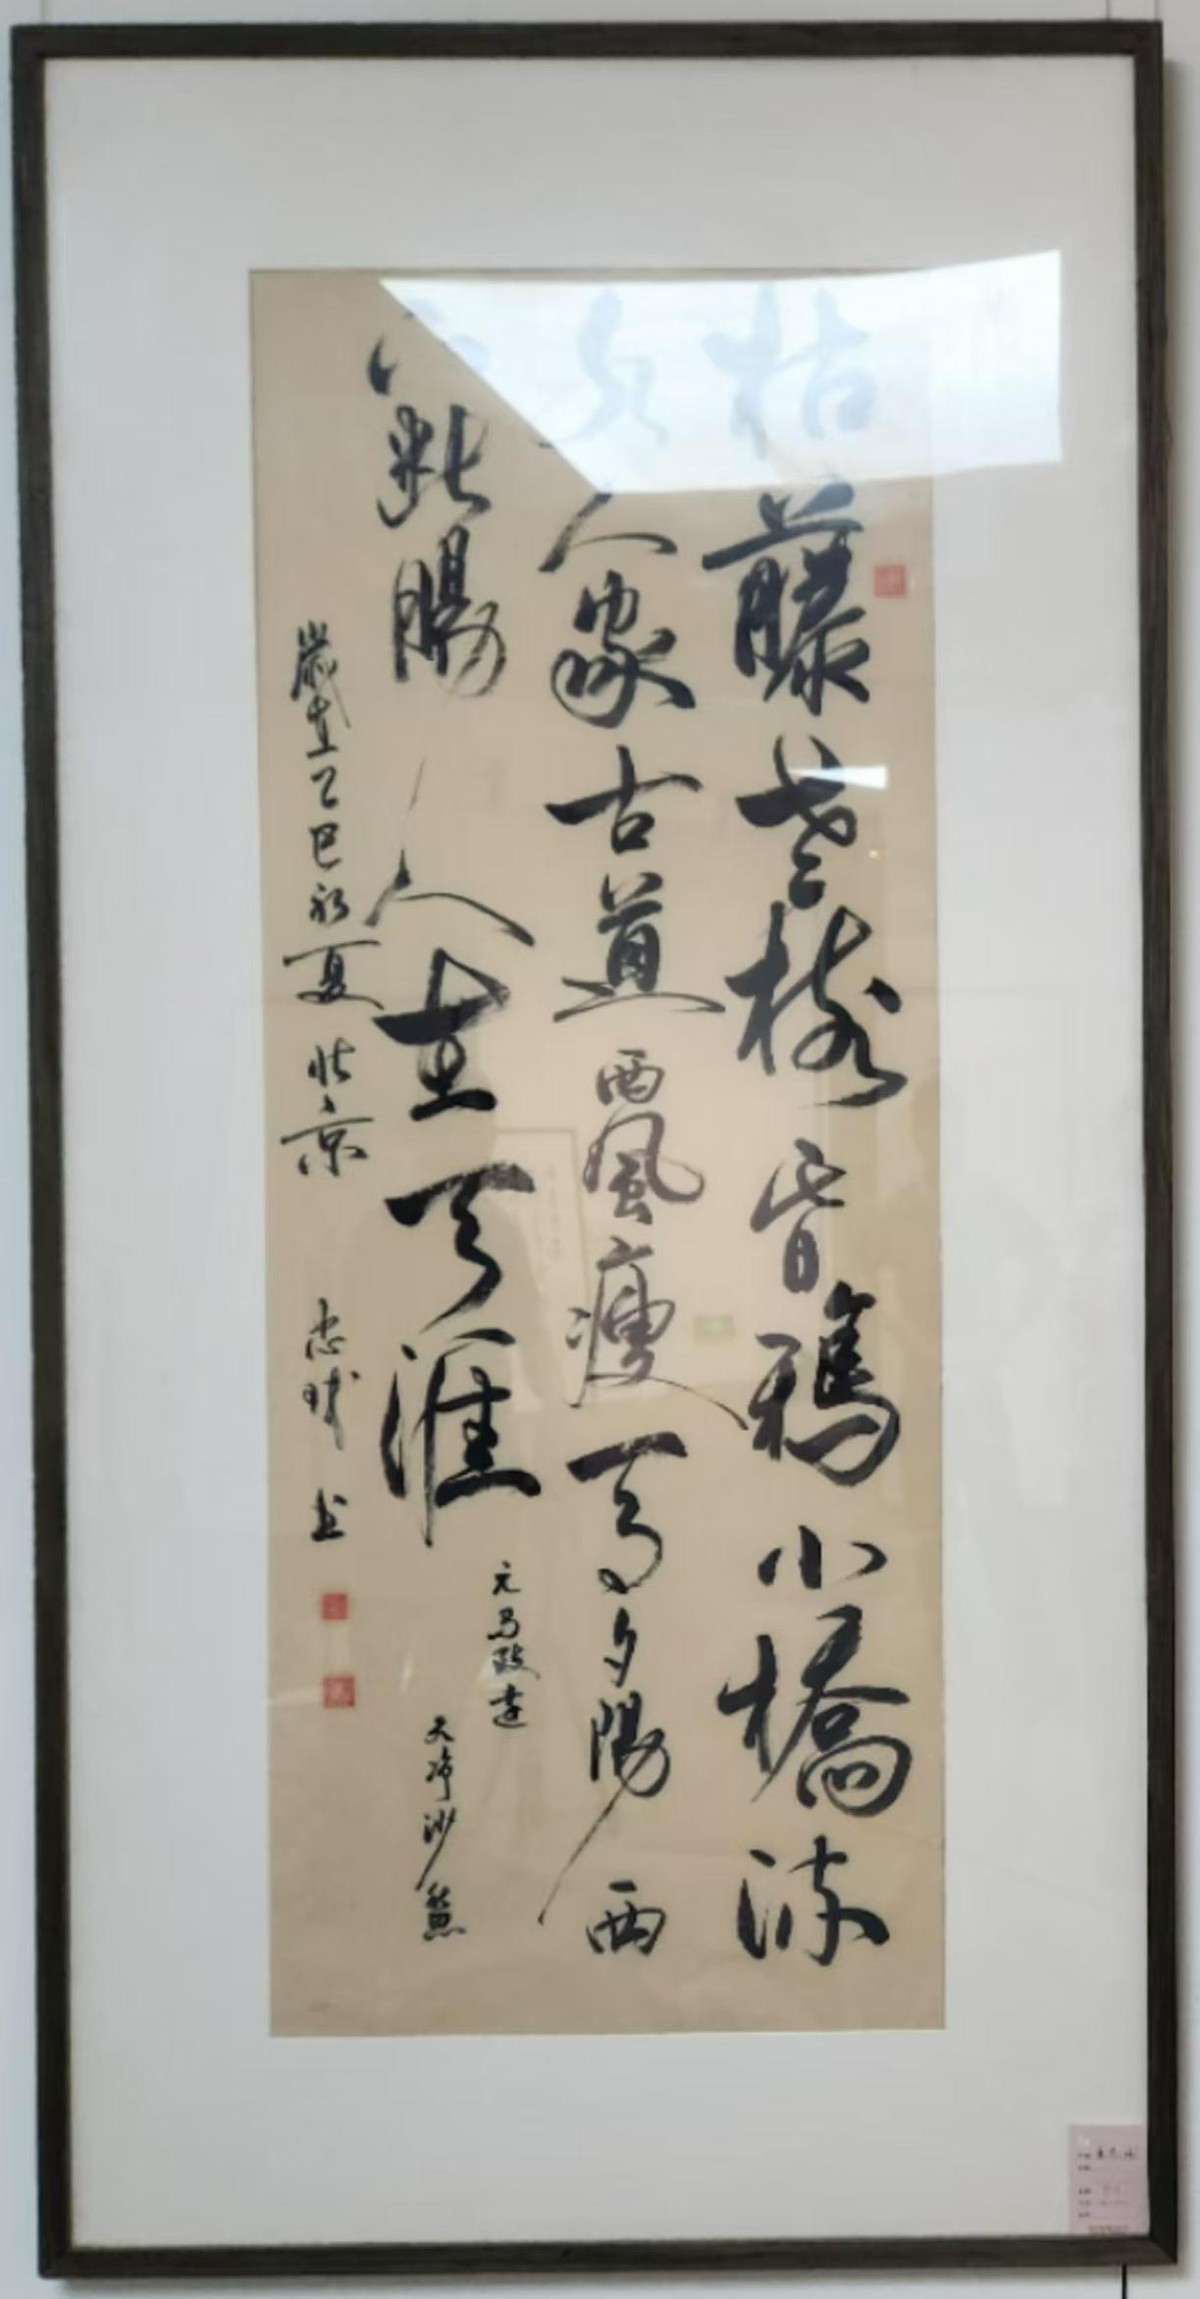 枯藤老樹昏鴉小橋流
水人家古道西風瘦馬夕陽西
下斷腸人在天涯
元馬致遠
天净沙
歲在乙巳初夏北京
忠 書